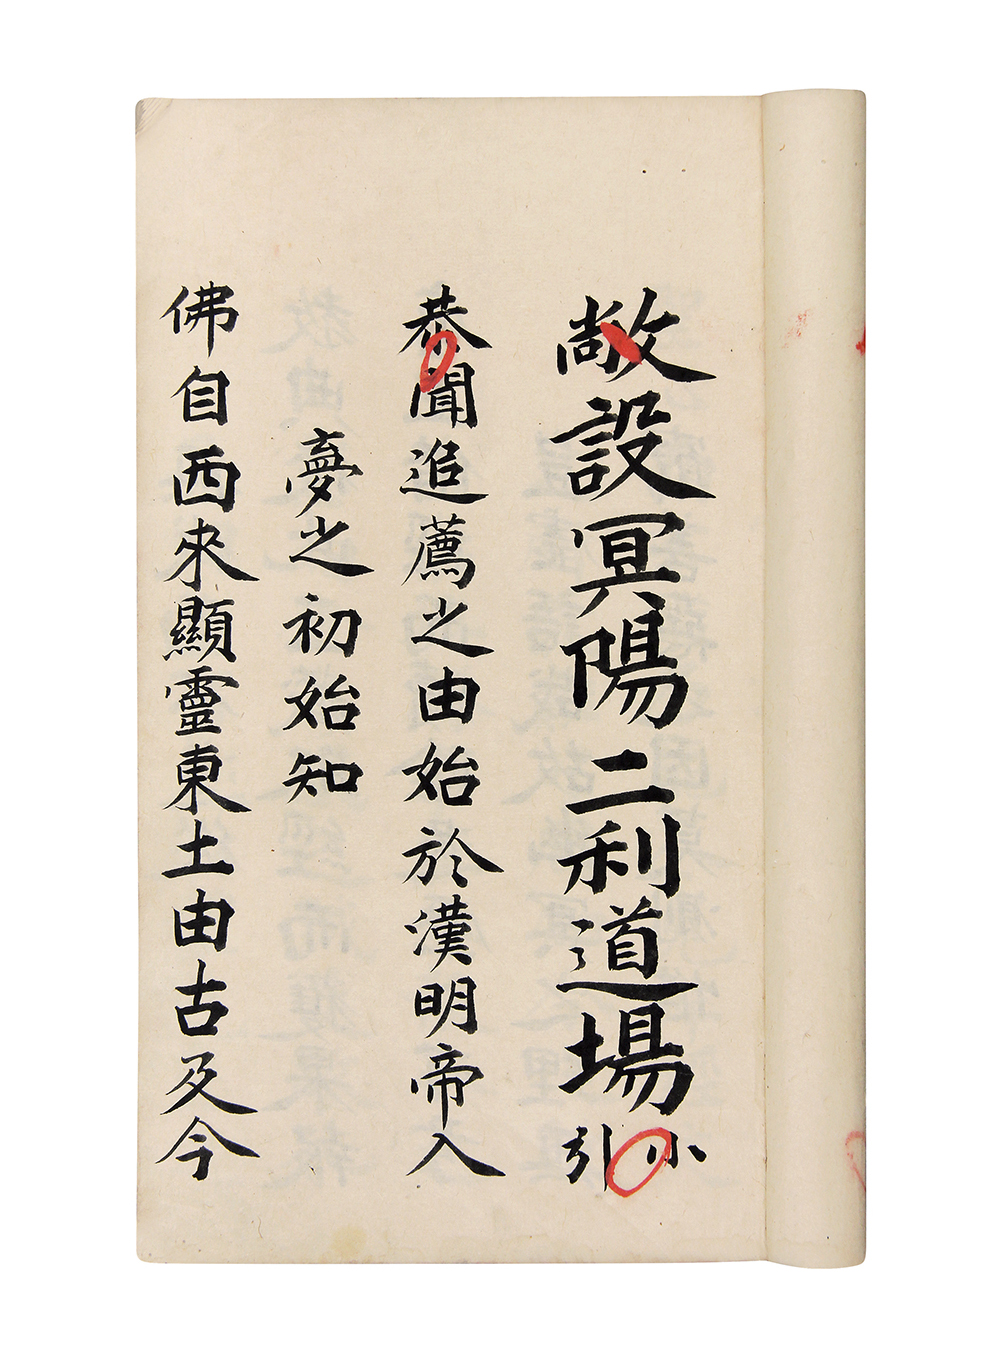 敞設冥陽二利道場小引
恭聞追薦之由始於漢明帝入
夢之初始知
佛自西來顯靈東土由古及今